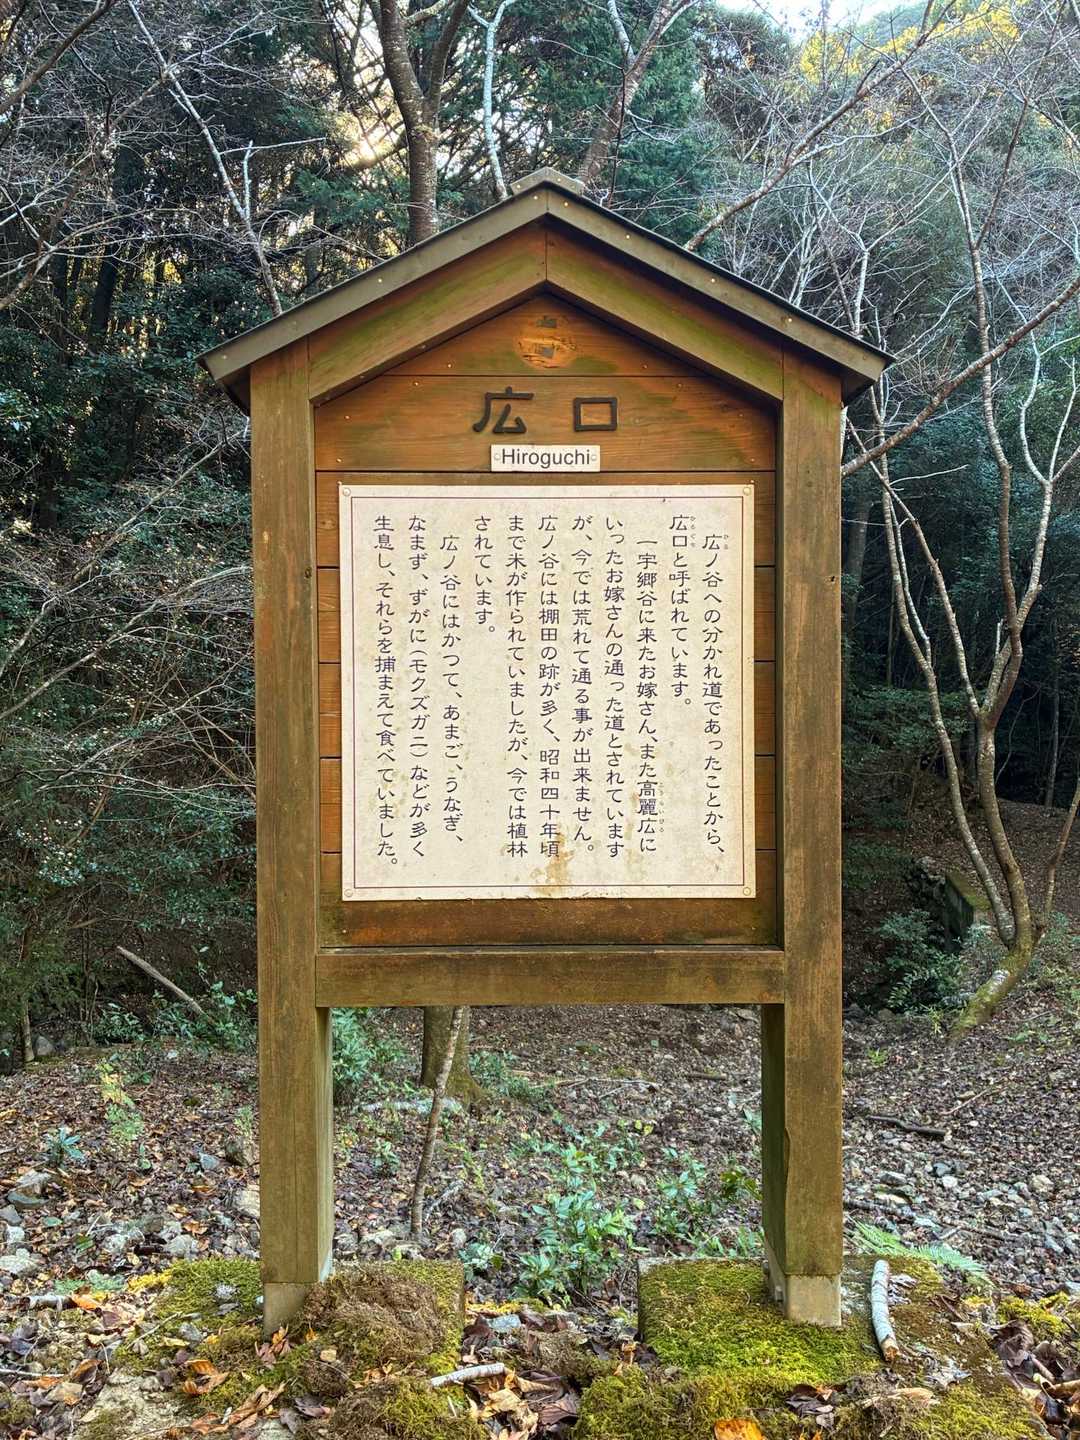 広口
Hiroguchi
広ノ谷への分かれ道であったことから、
広口と呼ばれています。
一宇郷谷に来たお嫁さん、また高麗広に
いったお嫁さんの通った道とされています
が、今では荒れて通る事が出来ません。
広ノ谷には棚田の跡が多く、昭和四十年頃
まで米が作られていましたが、今では植林
されています。
広ノ谷にはかつて、あまご、うなぎ、
なまず、ずがに(モクズガニ)などが多く
生息し、それらを捕まえて食べていました。